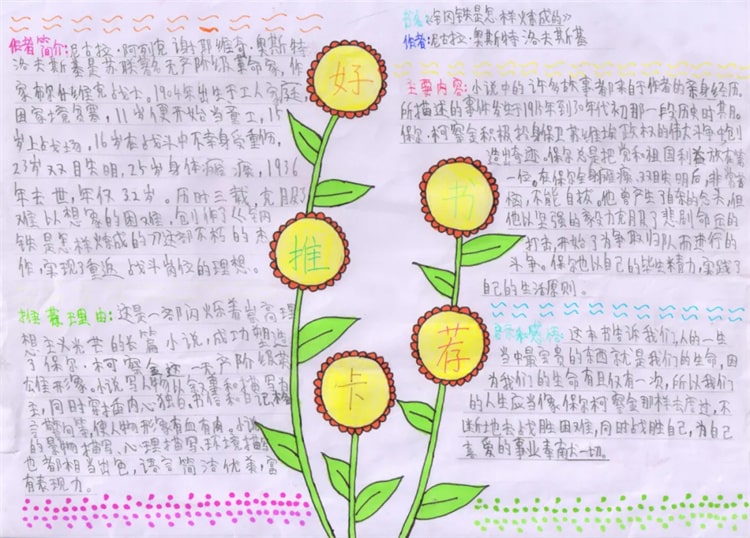 好
书
推
荐
卡
作者简介:尼古拉·阿列克谢耶维奇·奥斯特
洛夫斯基是苏联著名无产阶级革命家,作
家,布尔什维克战士。1904年出生于工人家庭,
因家境贫寒,11岁便开始当童工,15
岁上战场,16岁在战斗中不幸身受重伤,
23岁双目失明,25岁身体瘫痪,1936
年去世,年仅32岁。历时三载,克服
难以想象的困难,创作了《钢
铁是怎样炼成的》这部不朽的杰
作,实现了重返战斗岗位的理想。
推荐理由:这是一部闪烁着崇高理
想主义光芒的长篇小说,成功塑造
了保尔·柯察金这一无产阶级英
雄形象。小说写人物以叙事和描写为
主,同时穿插内心独白,书信和日记,格
言警句等,使人物形象有血有肉。小说
的景物描写、心理描写、环境描写
也都相当出色,语言简洁优美,富
有表现力。
书名:《钢铁是怎样炼成的》
作者:尼古拉·奥斯特洛夫斯基
主要内容:小说中的许多故事都来于作者的亲身经历。
所描述的事件发生于1915年到30年代初那一段历史时其月。
保尔·柯察金积极投身保卫苏维埃政权的伟大斗争,创
造出奇迹。保尔总是把党和祖国利益放在第
一位。在保尔全身瘫痪、双目失明后,非常苦
恼,不能自拔。他曾产生了自杀的念头,但
他以坚强的毅力克服了悲剧命运的
打击,开始了为争取归队而进行的
斗争。保尔也以自己的毕生精力,实践了
自己的生活原则。
这本书告诉我们,人的一生
当中最宝贵的东西就是我们的生命,因
为我们的生命有且仅有一次,所以我们
的人生应当像保尔柯察金那样去度过,不
断地去战胜困难,同时战胜自己,为自己
喜爱的事业奉献一切。